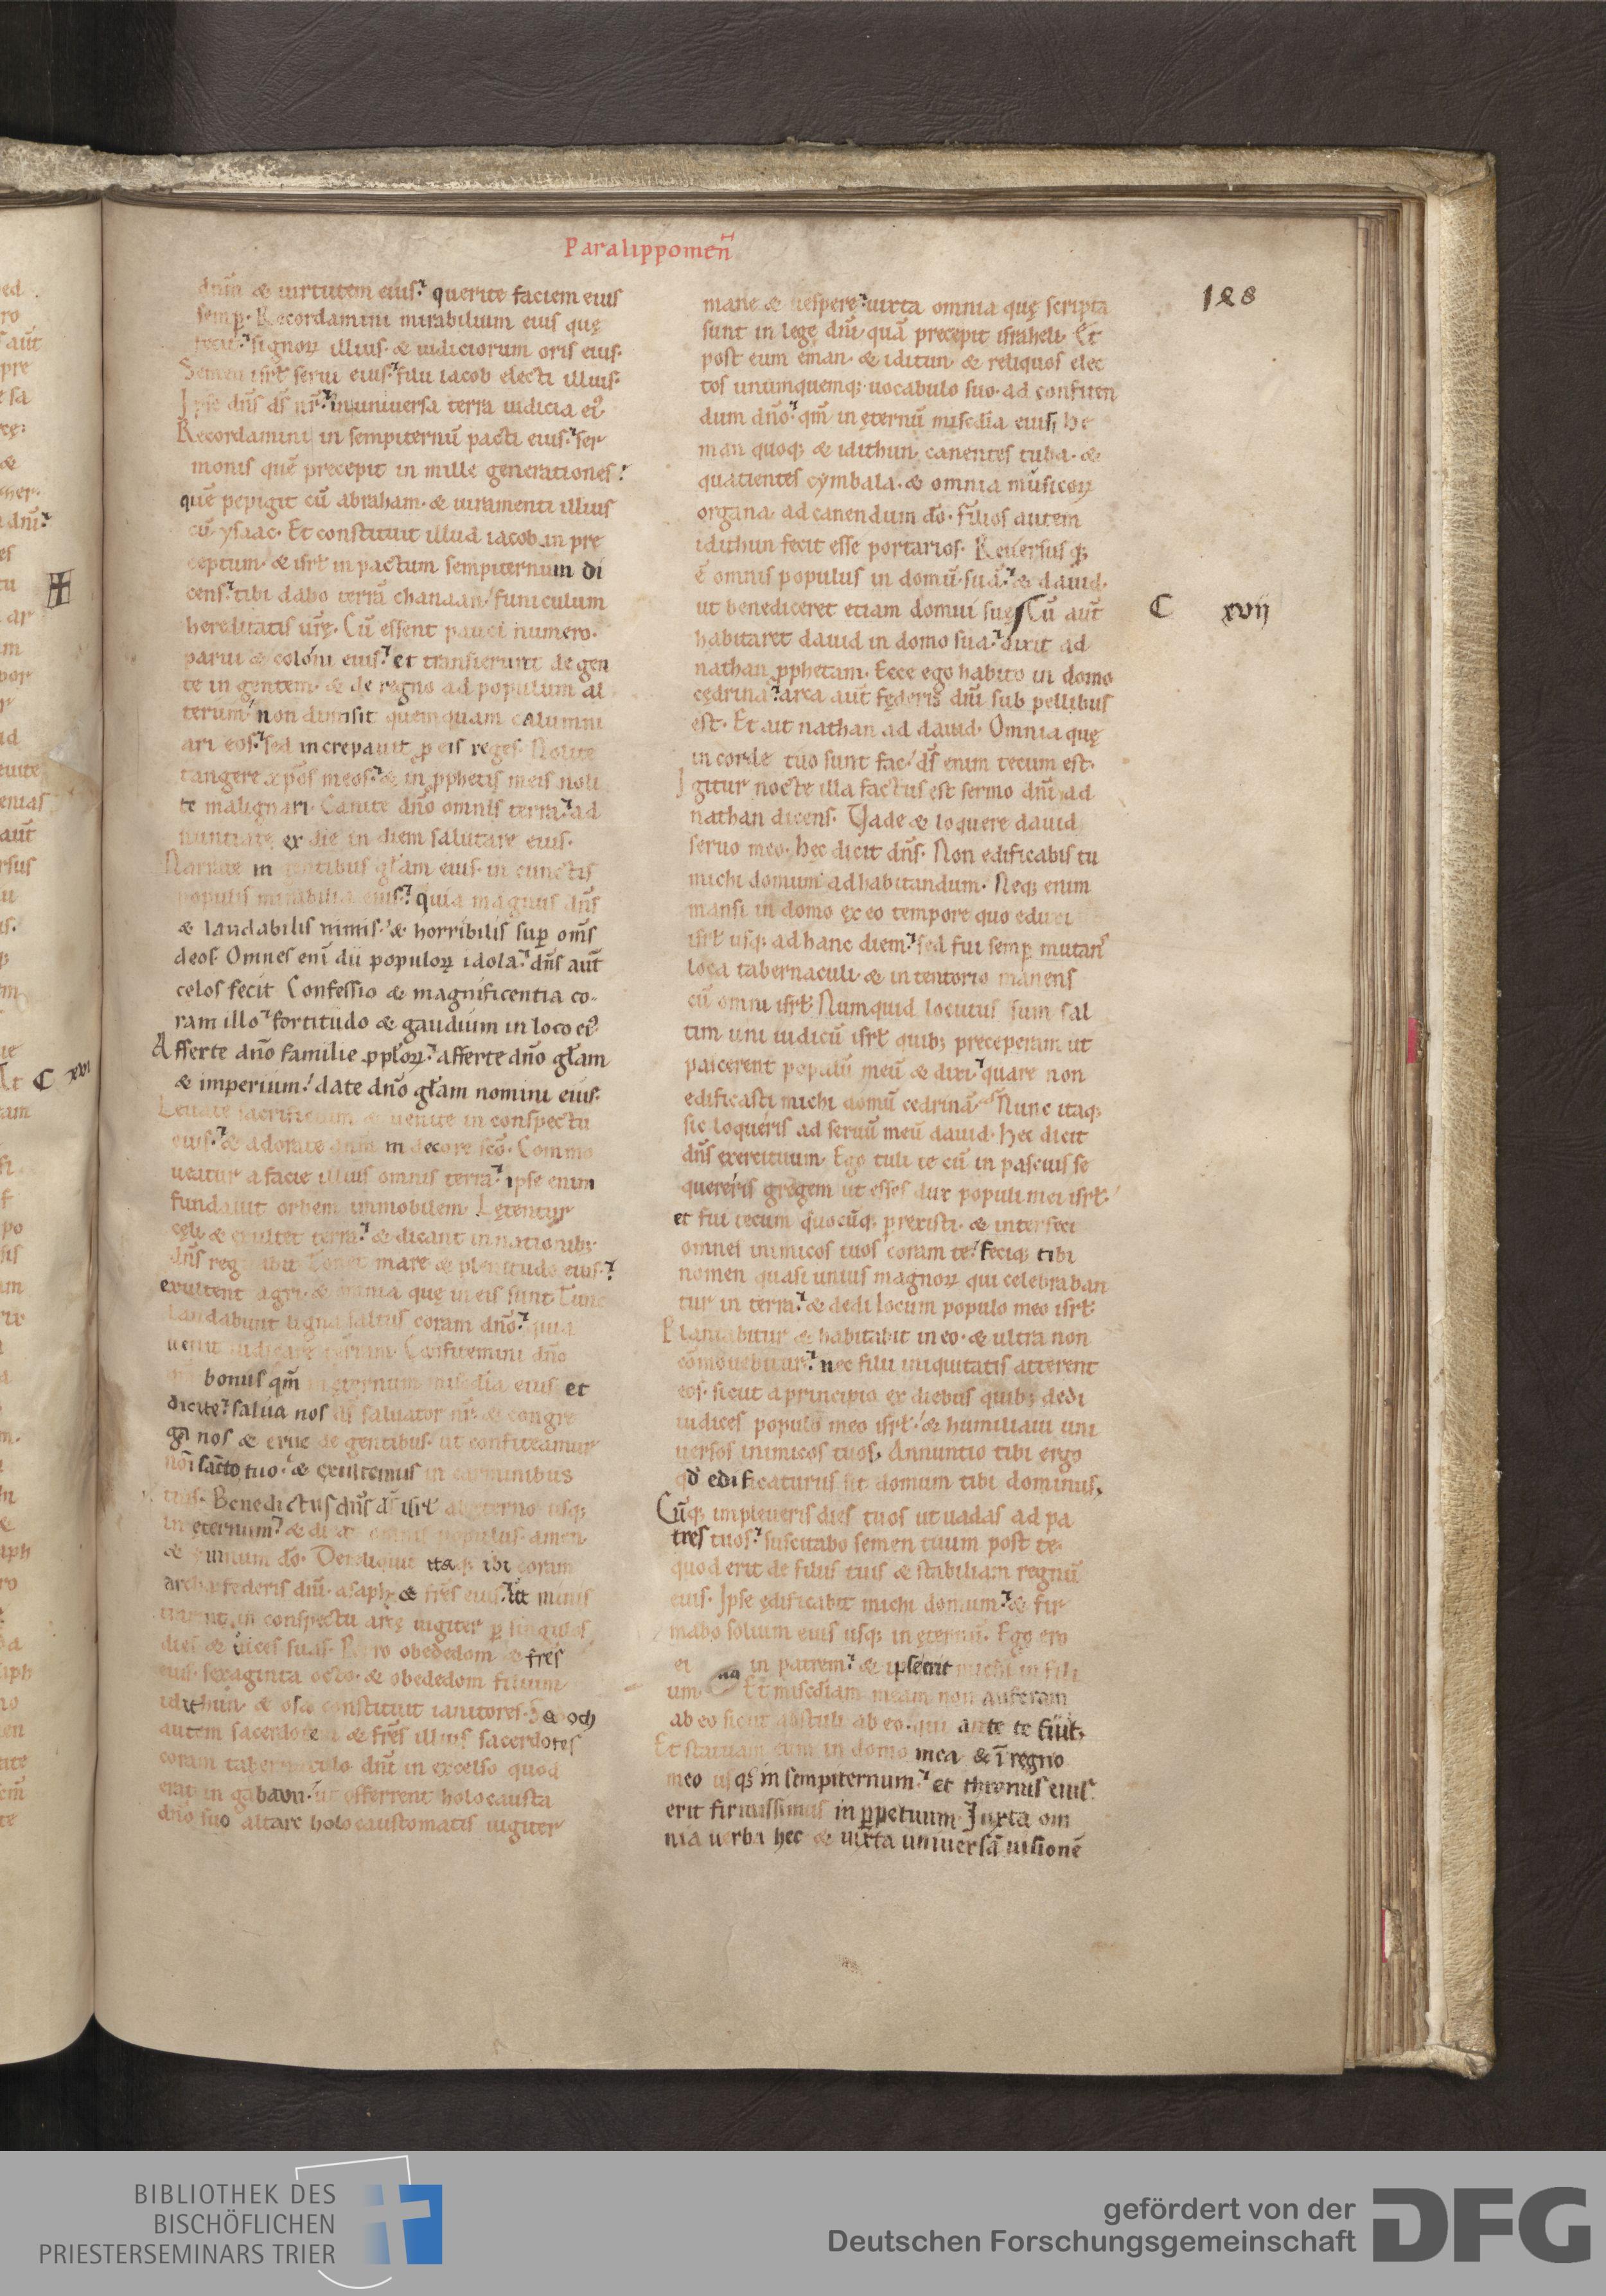 Paralippomen̄
188
dn̄m & uirtutem eius? querite faciem eius
semp̱. Recordamini mirabilium eius quę
fecit? signoꝝ illius. & iudiciorum oris eius.
Semen isrł serui eius? filii iacob electi illius.
Ipse dn̄s ds̄ nr̄? in uniuersa terra iudicia ei᷒
Recordamini in sempiternū pacti eius? ser
monis quē precepit in mille generationes!
quē pepigit cū abraham. & iuramenti illius
cū ysaac. Et constituit illud iacob in pre
ceptum. & isrł in pactum sempiternum di
cens? tibi dabo terrā chanaan! funiculum
hereditatis ur̄ę. Cū essent pauci numero.
parui & coloni eius? et transierunt de gen
te in gentem. & de regno ad populum al
terum! non dimisit quemquam calumni
ari eos? sed increpauit p̱ eis reges. Nolite
tangere xp̄os meos? & in ꝓphetis meis noli
te malignari. Canite dn̄o omnis terra? ad
nuntiate ex die in diem salutare eius.
Narrate in gentibus głam eius. in cunctis
populis mirabilia eius? quia magnus dn̄s
& laudabilis nimis! & horribilis sup̱ om̄s
deos. Omnes eni dii populoꝝ idola? dn̄s aut̄
celos fecit Confessio & magnificentia co-
ram illo? fortitudo & gaudium in loco ei᷒
Afferte dn̄o familie ꝓpłoꝝ? afferte dn̄o głam
& imperium! date dn̄o głam nomini eius.
Leuate sacrificium & uenite in conspectu
eius? & adorate dn̄m in decore scō. Commo
ueatur a facie illius omnis terra? ipse enim
fundauit orbem immobilem. Lętentur
cęli & exultet terra? & dicant in nationib;
dn̄s regnabit Tonet mare & plenitudo eius?
exultent agri. & omnia quę in eis sunt. Tunc
laudabunt ligna saltus coram dn̄o? quia
uenit iudicare terram. Confitemini dn̄o
bonus qm̄ in ęternum mis̄dia eius et
dicite? salua nos ds̄ saluator nr̄. & congre
ga nos & erue de gentibus. ut confiteamur
nōi sāncto tuo! & exultemus in carminibus
tuis. Benedictus dn̄s ds̄ isrł ab ęterno usq;
in ęternum? & dicat omnis populus. amen
& ymnum dō. Dereliquit itaq; ibi coram
archa federis dn̄i. asaph & frēs eius? ut minis
trarent in conspectu arcę iugiter p̱ singulos
dies & uices suas. Porro obededom & frēs
eius. sexaginta octo. & obededom filium
idithun. & osa constituit ianitores. Sadoch
autem sacerdotem & frēs illius sacerdotes
coram tabernaculo dn̄i in excelso quod
erat in gabaon! ut offerrent holocausta
dn̄o suo altare holocaustomatis iugiter
mane & uespere? iuxta omnia quę scripta
sunt in lege dn̄i. quā precepit israheli. Et
post eum eman. & iditun. & reliquos elec
tos unumquemq; uocabulo suo. ad confiten
dum dn̄o? qm̄ in ęternū mis̄dia eius; he
man quoq; & idithun. canentes tuba. &
quatientes cymbala. & omnia musicoꝝ
organa. ad canendum dō. Filios autem
idithun fecit esse portarios. Reuersus q;
ē omnis populus in domū suā? & dauid.
ut benediceret etiam domui suę. Cū aut̄
C xvij
habitaret dauid in domo sua? dixit ad
nathan ꝓphetam. Ecce ego habito in domo
cędrina? arca aut̄ fęderis dn̄i sub pellibus
est. Et ait nathan ad dauid. Omnia quę
in corde tuo sunt fac! ds̄ enim tecum est.
Igitur nocte illa factus est sermo dn̄i ad
nathan dicens. Vade & loquere dauid
seruo meo. hec dicit dn̄s. Non edificabis tu
michi domum ad habitandum. Neq; enim
mansi in domo ex eo tempore quo eduxi
isrł usq; ad hanc diem? sed fui semp̱ mutans
loca tabernaculi. & in tentorio manens
cū omni isrł. Numquid locutus sum sal
tim uni iudicū isrł quib; preceperam ut
pascerent populū meū & dixi? quare non
edificasti michi domū cedrinā. Nunc itaq;
sic loqueris ad seruū meū dauid. hec dicit
dn̄s exercituum. Ego tuli te cū in pascuis se
quereris gregem ut esses dux populi mei isrł.
et fui tecum quocūq; perrexisti. & interfeci
omnes inimicos tuos coram te! feciq; tibi
nomen quasi unius magnoꝝ qui celebraban
tur in terra? & dedi locum populo meo isrł.
Plantabitur & habitabit in eo. & ultra non
cōmouebitur? nec filii iniquitatis atterent
eos. sicut a principio ex diebus quib; dedi
iudices populo meo isrł! & humiliaui uni
uersos inimicos tuos. Annuntio tibi ergo
qđ edificaturus sit domum tibi dominus.
Cūq; impleueris dies tuos ut uadas ad pa
tres tuos? suscitabo semen tuum post te.
quod erit de filiis tuis & stabiliam regnū
eius. Ipse ędificabit michi domum? & fir
mabo solium eius usq; in ęternū. Ego ero
ei in patrem? & ipse erit michi in fili
um. Et mis̄diam meam non auferam
ab eo sicut abstuli ab eo. qui ante te fuit.
Et statuam eum in domo mea & ī regno
meo usq; in sempiternum? et thronus eius.
erit firmissimus in ꝑpetuum. Juxta om
nia uerba hec & iuxta uniuersā uisionē
C xvi
BIBLIOTHEK DES
BISCHÖFLICHEN
PRIESTERSEMINARS TRIER
gefördert von der
Deutschen Forschungsgemeinschaft
DFG